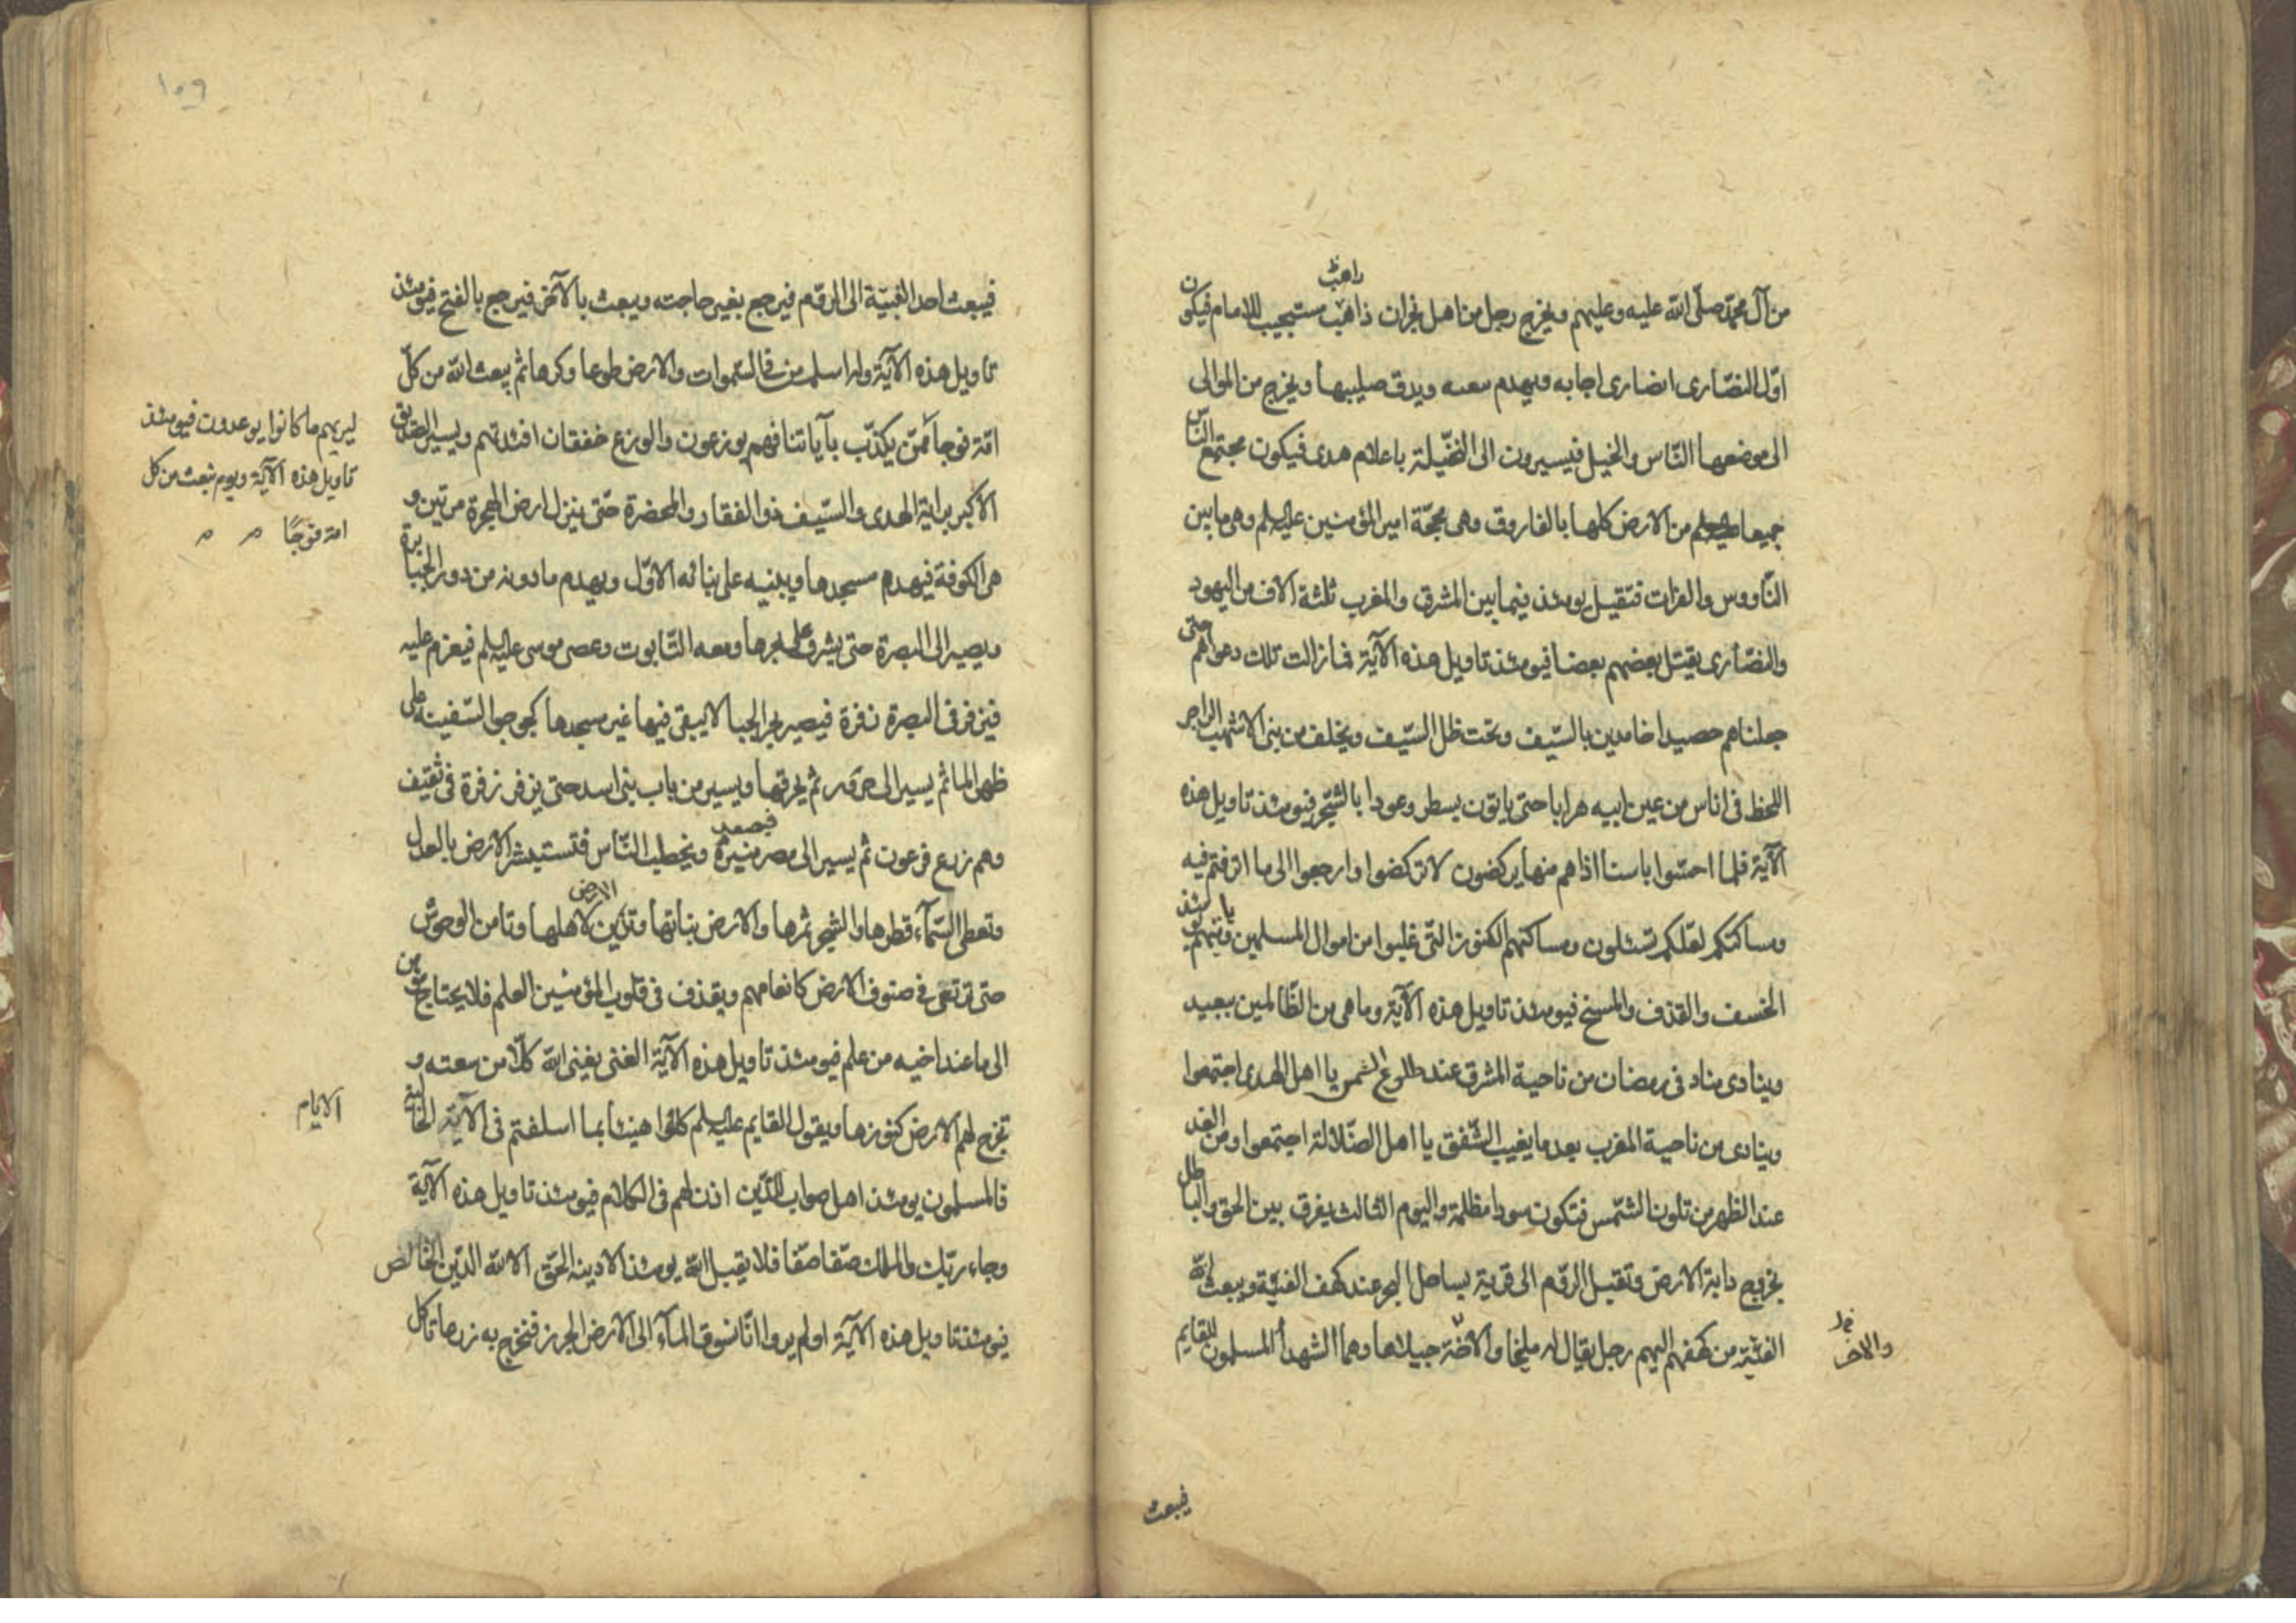 راهب
من آل محمد صلى الله عليه وعليهم ويخرج رجل من اهل نجران ذاهب مستجيب للامام فيكون
اول النصارى اجابه ويهدم بيعته ويدق صليبها ويخرج من الموالى
الى موضعها الناس والخيل فيسيرون الى النخيلة باعلام هدى فيكون مجتمع الناس
جميعا من الارض كلها بالفاروق وهى محجة امير المؤمنين عليه السلم وهى ما بين
الناووس والفرات فتقبل يومئذ فيما بين المشرق والمغرب ثلثة الاف من اليهود
والنصارى يقتل بعضهم بعضا فيومئذ تاويل هذه الآية فما زالت تلك دعواهم حتى
جعلناهم حصيدا خامدين بالسيف وتحت ظل السيف ويخلف من بنى الاشهب الزاجر
اللحظ فى اناس من عين ابيه هرابا حتى ياتون بسطر وعودا بالشجر فيومئذ تاويل هذه
الآية فلما احسوا باسنا اذا هم منها يركضون لا تركضوا وارجعوا الى ما اترفتم فيه
ومساكنكم لعلكم تسئلون ومساكنهم الكنوز التى غلبوا من اموال المسلمين وياتيهم يومئذ
الخسف والقذف والمسخ فيومئذ تاويل هذه الآية وما هى من الظالمين ببعيد
وينادى مناد فى رمضان من ناحية المشرق عند طلوع الشمس يا اهل الهدى اجتمعوا
وينادى من ناحية المغرب بعد ما يغيب الشفق يا اهل الضلالة اجتمعوا ومن الغد
عند الظهر من تلون الشمس فتكون سودا مظلمة واليوم الثالث يفرق بين الحق والباطل
بخروج دابة الارض وتقبل الروم الى قرية بساحل البحر عند كهف الفتية ويبعث الله
الفتية من كهفهم اليهم رجل يقال له مليخا والاخر حبيلاها وهما الشهدا المسلمون للقايم
والاخر
فيبعث
١٠٩
فيبعث احد الفتية الى الروم فيرجع بغير حاجته ويبعث بالآخر فيرجع بالفتح فيومئذ
تاويل هذه الآية وله اسلم من فى السموات والارض طوعا وكرها ثم يبعث الله من كل
امة فوجا ممن يكذب بآياتنا فهم يوزعون والوزع خفقان افئدتهم ويسير الصديق
الاكبر براية الهدى والسيف ذو الفقار والمخصرة حتى ينزل ارض الهجرة مرتين و
هى الكوفة فيهدم مسجدها ويبنيه على بنائه الاول ويهدم ما دونه من دور الجبابرة
ويصير الى البصرة حتى يشرف على بحرها ومعه التابوت وعصى موسى عليه السلم فيعزم عليه
فيزفر فى البصرة زفرة فيصير بحرا لجيا لا يبقى فيها غير مسجدها كجوجو السفينة على
ظهر الما ثم يسير الى حرور ثم يحرقها ويسير من باب بنى اسد حتى يزفر زفرة فى ثقيف
وهم زرع فرعون ثم يسير الى مصر فيصعد منبره ويخطب الناس فتستبشر الارض بالعدل
وتعطى السمآء قطرها والشجر ثمرها والارض نباتها وتزين الارض لاهلها وتامن الوحوش
حتى ترتعى فى صنوف الارض كانعامهم ويقذف فى قلوب المؤمنين العلم فلا يحتاج مؤمن
الى ما عند اخيه من علم فيومئذ تاويل هذه الآية الغنى يغنى الله كلا من سعته و
تخرج لهم الارض كنوزها ويقول القايم عليه السلم كلوا هنيئا بما اسلفتم فى الآية الخالية
فالمسلمون يومئذ اهل صواب للدين اذن لهم فى الكلام فيومئذ تاويل هذه الآية
وجاء ربك والملك صفا صفا فلا يقبل الله يومئذ الا دينه الحق الا لله الدين الخالص
فيومئذ تاويل هذه الآية اولم يروا انا نسوق المآء الى الارض الجرز فنخرج به زرعا تاكل
ليريهم ما كانوا يوعدون فيومئذ
تاويل هذه الآية ويوم نبعث من كل
امة فوجًا
الايام